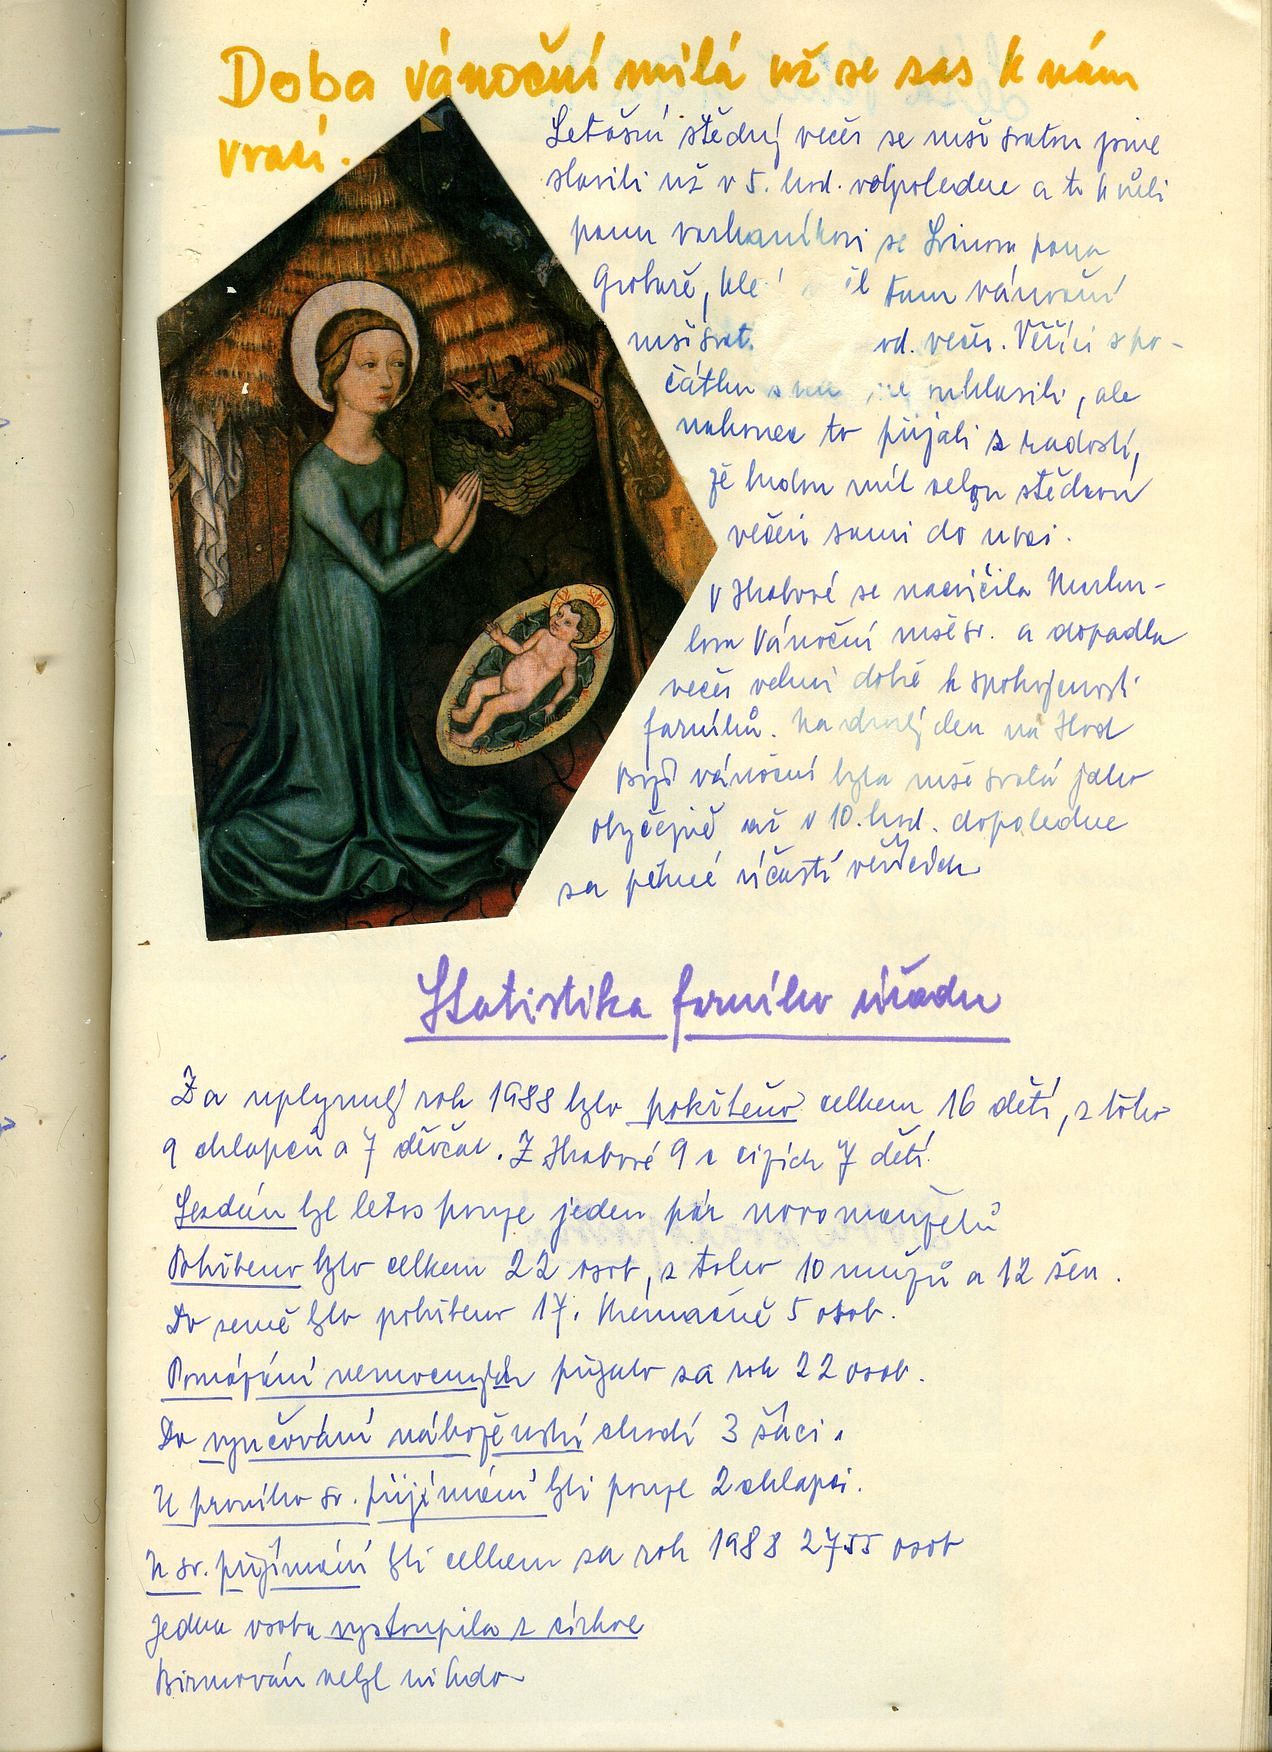 Doba vánoční milá už se zas k nám
vrací.
Letošní štědrý večer se mší svatou jsme
slavili už v 5. hod. odpoledne a to kvůli
panu varhaníkovi se pana
tum vánoční
mši svat. od. večer. Věřící zpo-
čátku souhlasili, ale
nakonec to přijali s radostí,
že budou mít celou štědrou
večeři sami do noci.
V Hrabové se nacvičila
Vánoční mše sv. a dopadla
večer velmi dobře k spokojenosti
farníků. Na druhý den na Hod
Boží vánoční byla mše svatá jako
obyčejně až v 10. hod. dopoledne
za pěkné účasti věřících
Statistika farního úřadu
Za uplynulý rok 1988 bylo pokřtěno celkem 16 dětí, z toho
9 chlapců a 7 děvčat. Z Hrabové 9 a cizích 7 dětí.
Sezdán byl letos pouze jeden pár novomanželů
Pohřbeno bylo celkem 22 osob, z toho 10 mužů a 12 žen.
Do země bylo pohřbeno 17. Kremačně 5 osob.
Pomazání nemocných přijalo za rok 22 osob.
Do vyučování náboženství chodí 3 žáci.
U prvního sv. přijímání byli pouze 2 chlapci.
U sv. přijímání byli celkem za rok 1988 2755 osob
Jedna osoba vystoupila z církve
Biřmován nebyl nikdo